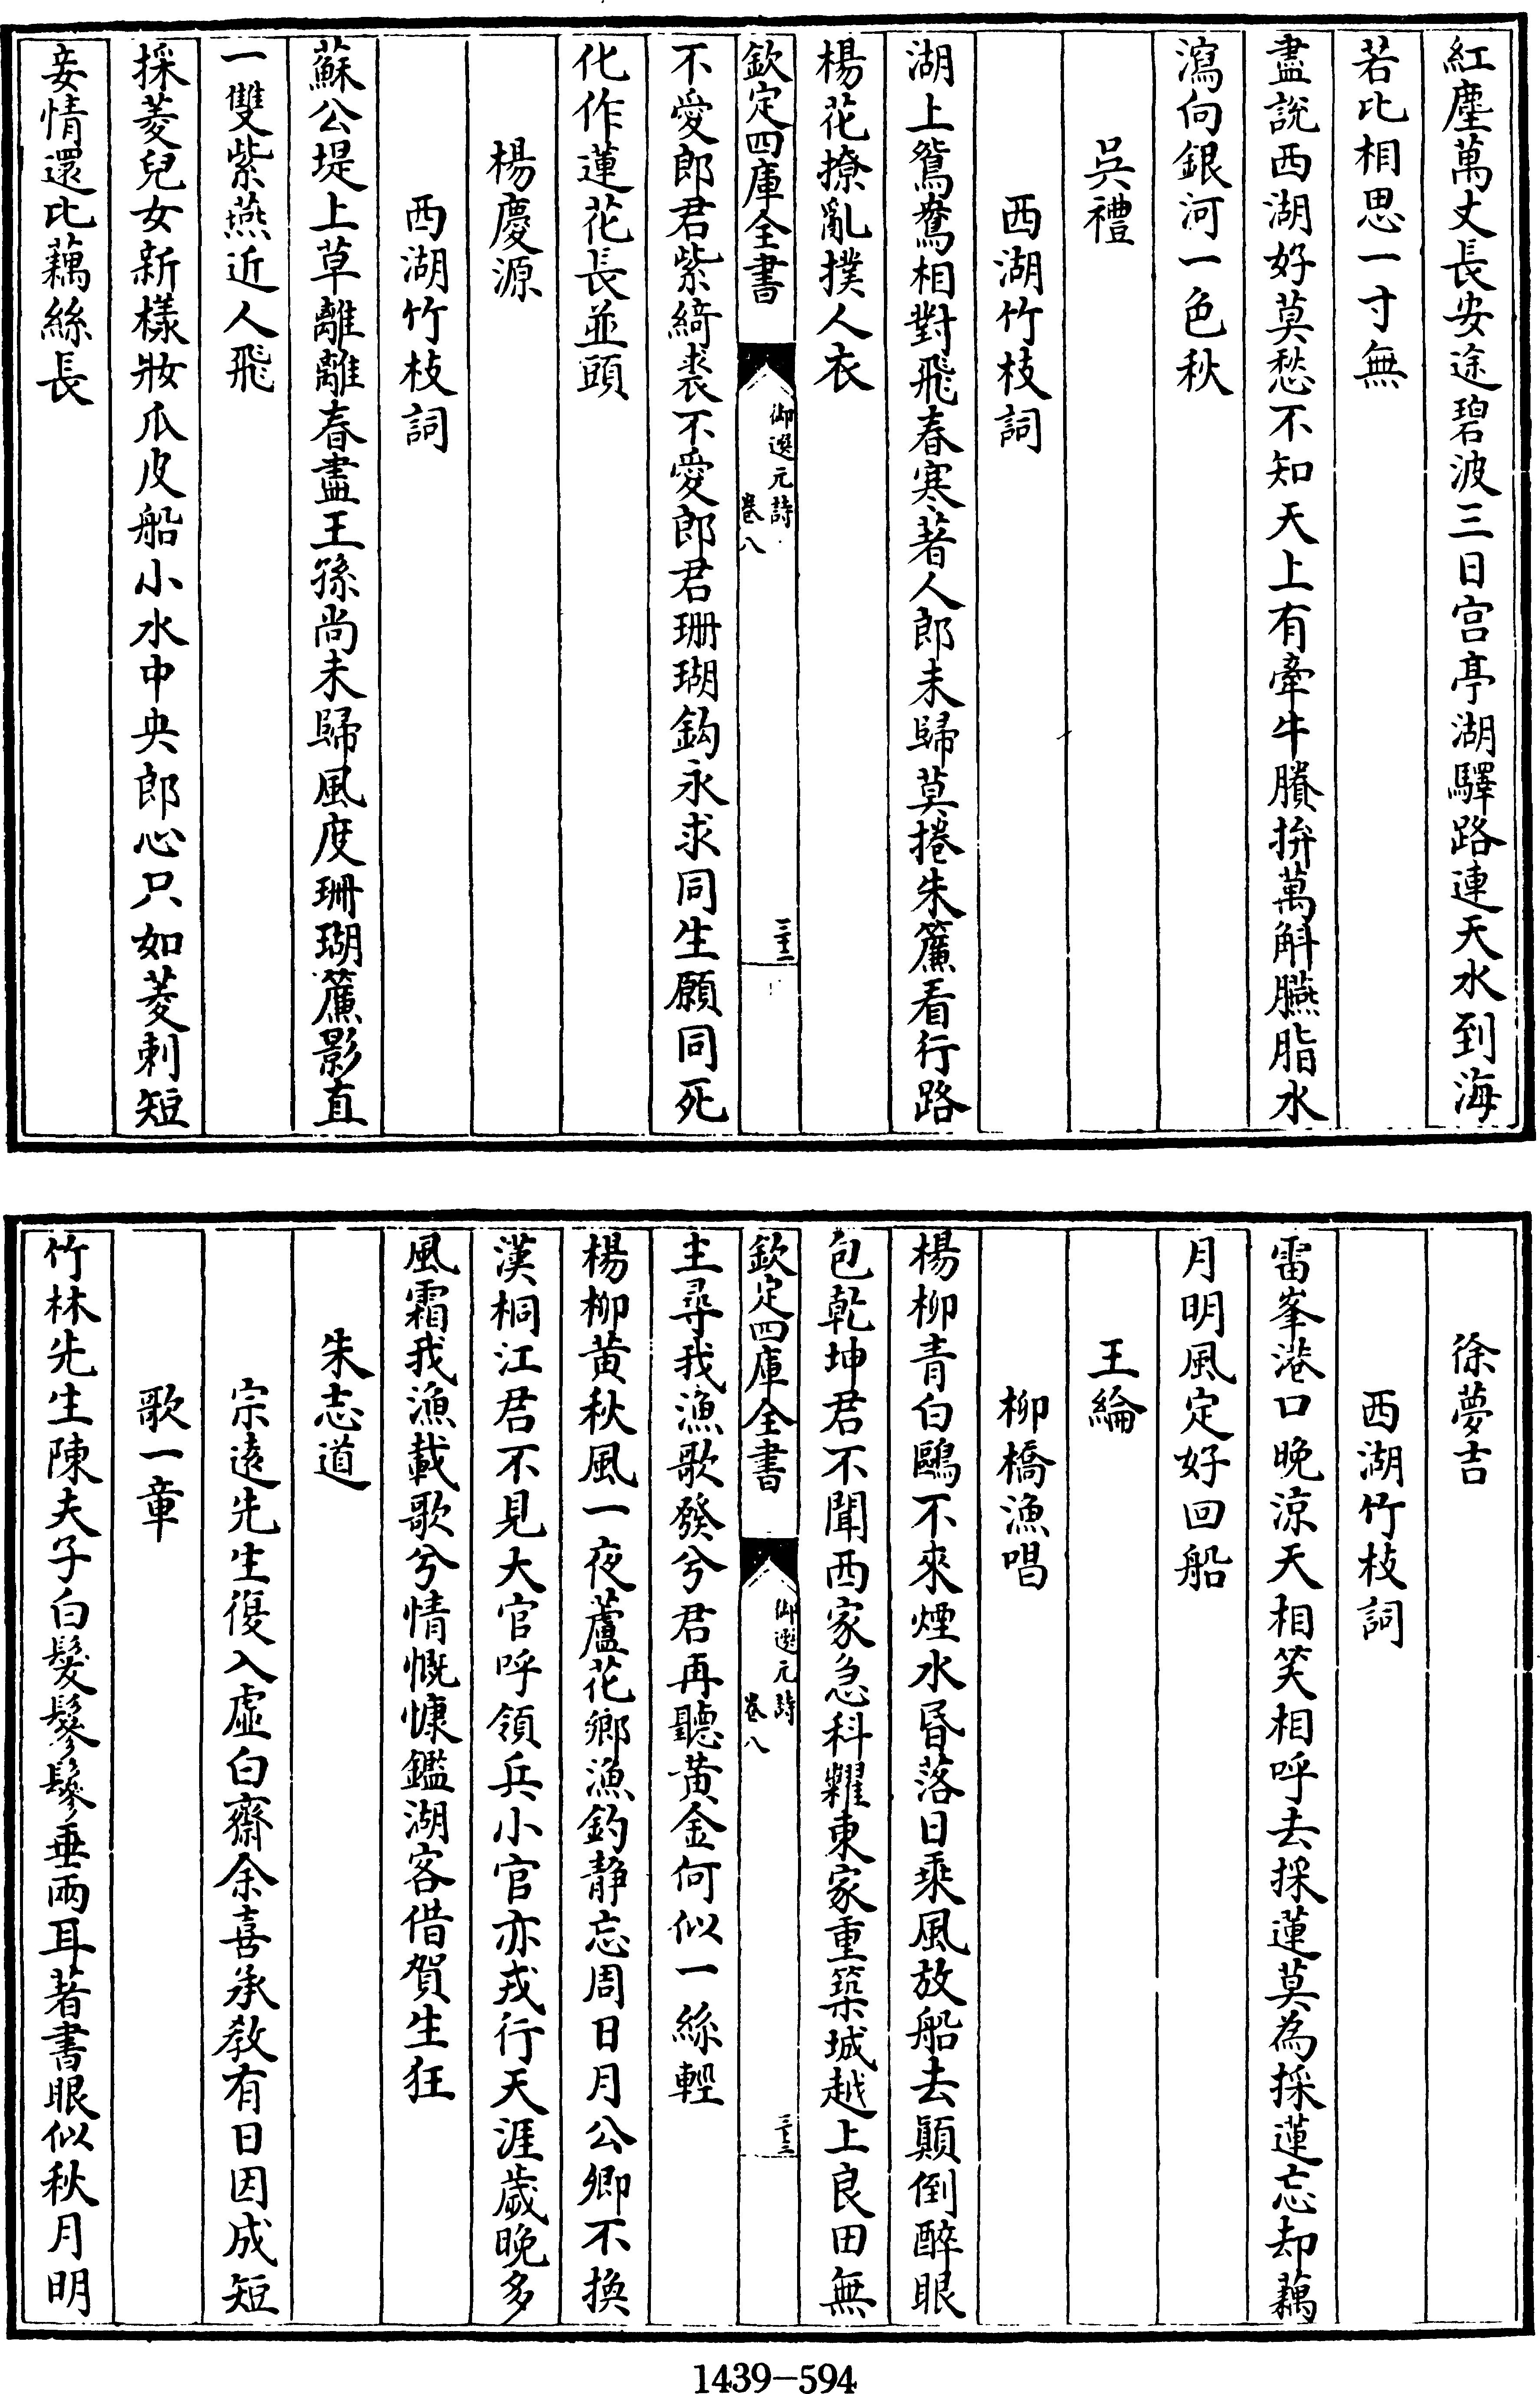 紅塵萬丈長安途碧波三日宫亭湖驛路連天水到海
若比相思一寸無
盡說西湖好莫愁不知天上有牽牛賸拚萬斛臙脂水
瀉向銀河一色秋
吳禮
西湖竹枝詞
湖上鴛鴦相對飛春寒著人郎未歸莫捲朱簾看行路
楊花撩亂撲人衣
欽定四庫全書
御選元詩
卷八
三十二
不愛郎君紫綺裘不愛郎君珊瑚鈎永求同生願同死
化作蓮花長並頭
楊慶源
西湖竹枝詞
蘇公堤上草離離春盡王孫尚未歸風度珊瑚簾影直
一雙紫燕近人飛
採菱兒女新樣妝爪皮船小水中央郎心只如菱刺短
妾情還比藕絲長
徐夢吉
西湖竹枝詞
雷峯港口晚涼天相笑相呼去採蓮莫為採蓮忘却藕
月明風定好回船
王綸
柳橋漁唱
楊柳青白鷗不來煙水昏落日乘風放船去顛倒醉眼
包乾坤君不聞西家急科糶東家重築城越上良田無
欽定四庫全書
御選元詩
卷八
三十三
主尋我漁歌發兮君再聽黄金何似一絲輕
楊柳黄秋風一夜蘆花鄉漁釣静忘周日月公卿不換
漢桐江君不見大官呼領兵小官亦戎行天涯歲晚多
風霜我漁載歌兮情慨慷鑑湖客借賀生狂
朱志道
宗遠先生復入虛白齋余喜承敎有日因成短
歌一章
竹林先生陳夫子白髮鬖鬖垂兩耳著書眼似秋月明
1439-594